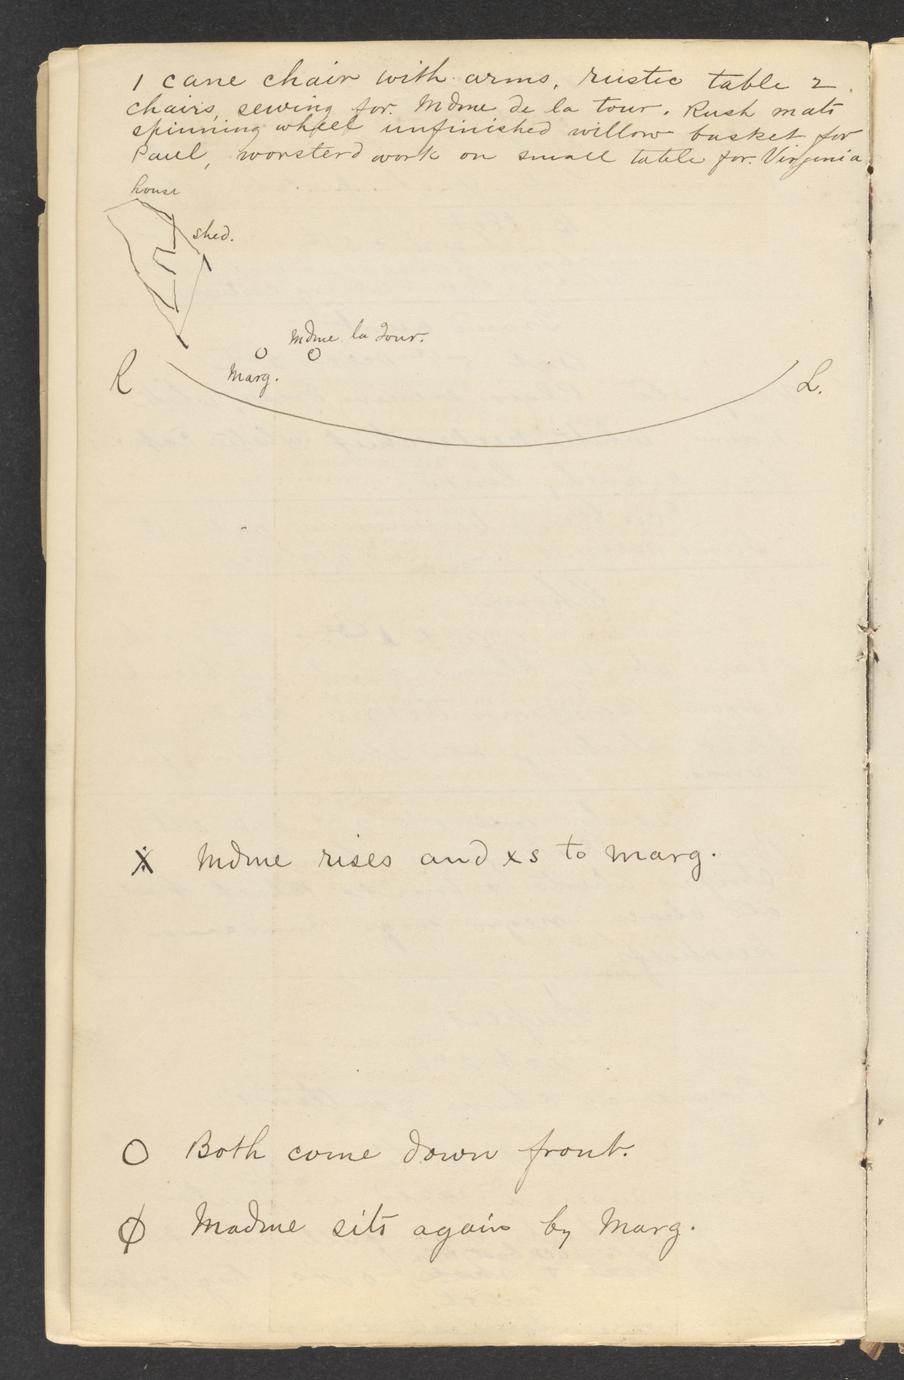 1 cane chair with arms, rustic table 2
chairs, sewing for. Mdme de la tour. Rush mats
spinning wheel unfinished willow basket for
Paul, worsterd work on small table for. Virginia
house
shed.
Mdme la Tour.
O O
Marg.
R L.
X Mdme rises and xs to Marg.
O Both come down front.
φ Madme sits again by Marg.